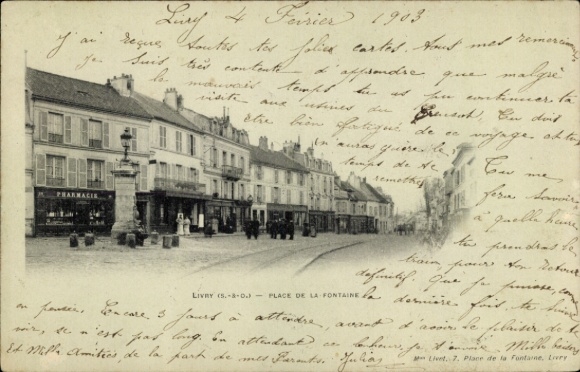 Livry 4 Février 1903
J'ai reçu toutes tes jolies cartes. Tous mes remerciem
Je suis très contente d'apprendre que malgré
le mauvais temps tu as pu continuer ta
visite aux usines du Creusot. Tu dois
être bien fatigué de ce voyage et tu
n'auras guère le
temps de te
remettre
Tu me
fera savoir
à quelle heure
tu prendras le
train pour ton retour
définitif. Que je puisse, comme
la dernière fois te suivre
en pensée. Encore 3 jours à attendre, avant d'avoir le plaisir de te
voir, ce n'est pas long. En attendant ce bonheur, je t'envoie Mille baisers
Et Mille Amitiés de la part de mes Parents. Julia
PHARMACIE
LIVRY (S.-&-O.) — PLACE DE LA FONTAINE
Mon Livet, 7, Place de la Fontaine, Livry